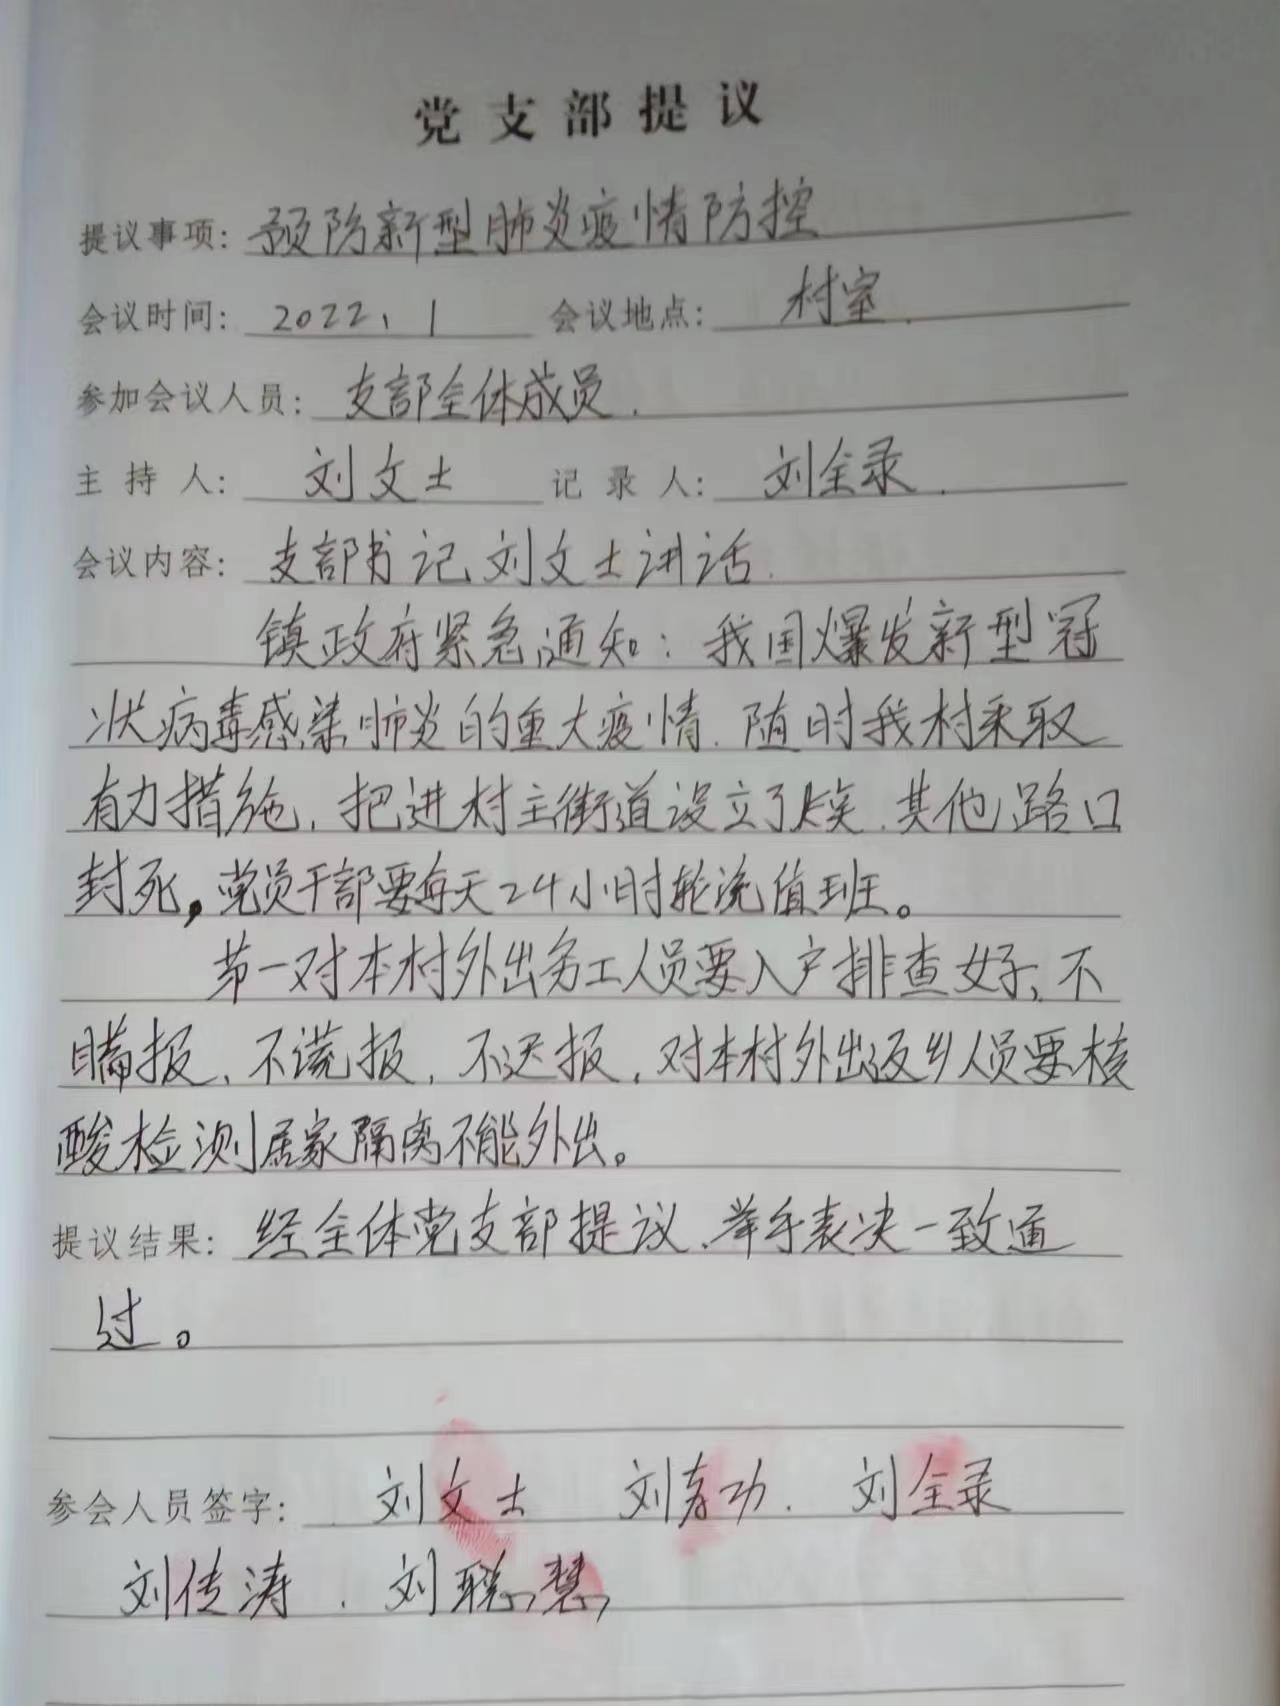 党支部提议
提议事项：预防新型肺炎疫情防控
会议时间：2022、1 会议地点：村室.
参加会议人员：支部全体成员.
主持人：刘文士 记录人：刘全录.
会议内容：支部书记刘文士讲话.
镇政府紧急通知：我国爆发新型冠
状病毒感染肺炎的重大疫情.随时我村采取
有力措施,把进村主街道设立了 其他路口
封死,党员干部要每天24小时轮流值班。
第一对本村外出务工人员要入户排查好、不
瞒报、不谎报,不迟报,对本村外出返乡人员要核
酸检测居家隔离不能外出。
提议结果：经全体党支部提议、举手表决一致通
过。
参会人员签字：刘文士 刘 功. 刘全录
刘传涛.刘聪慧